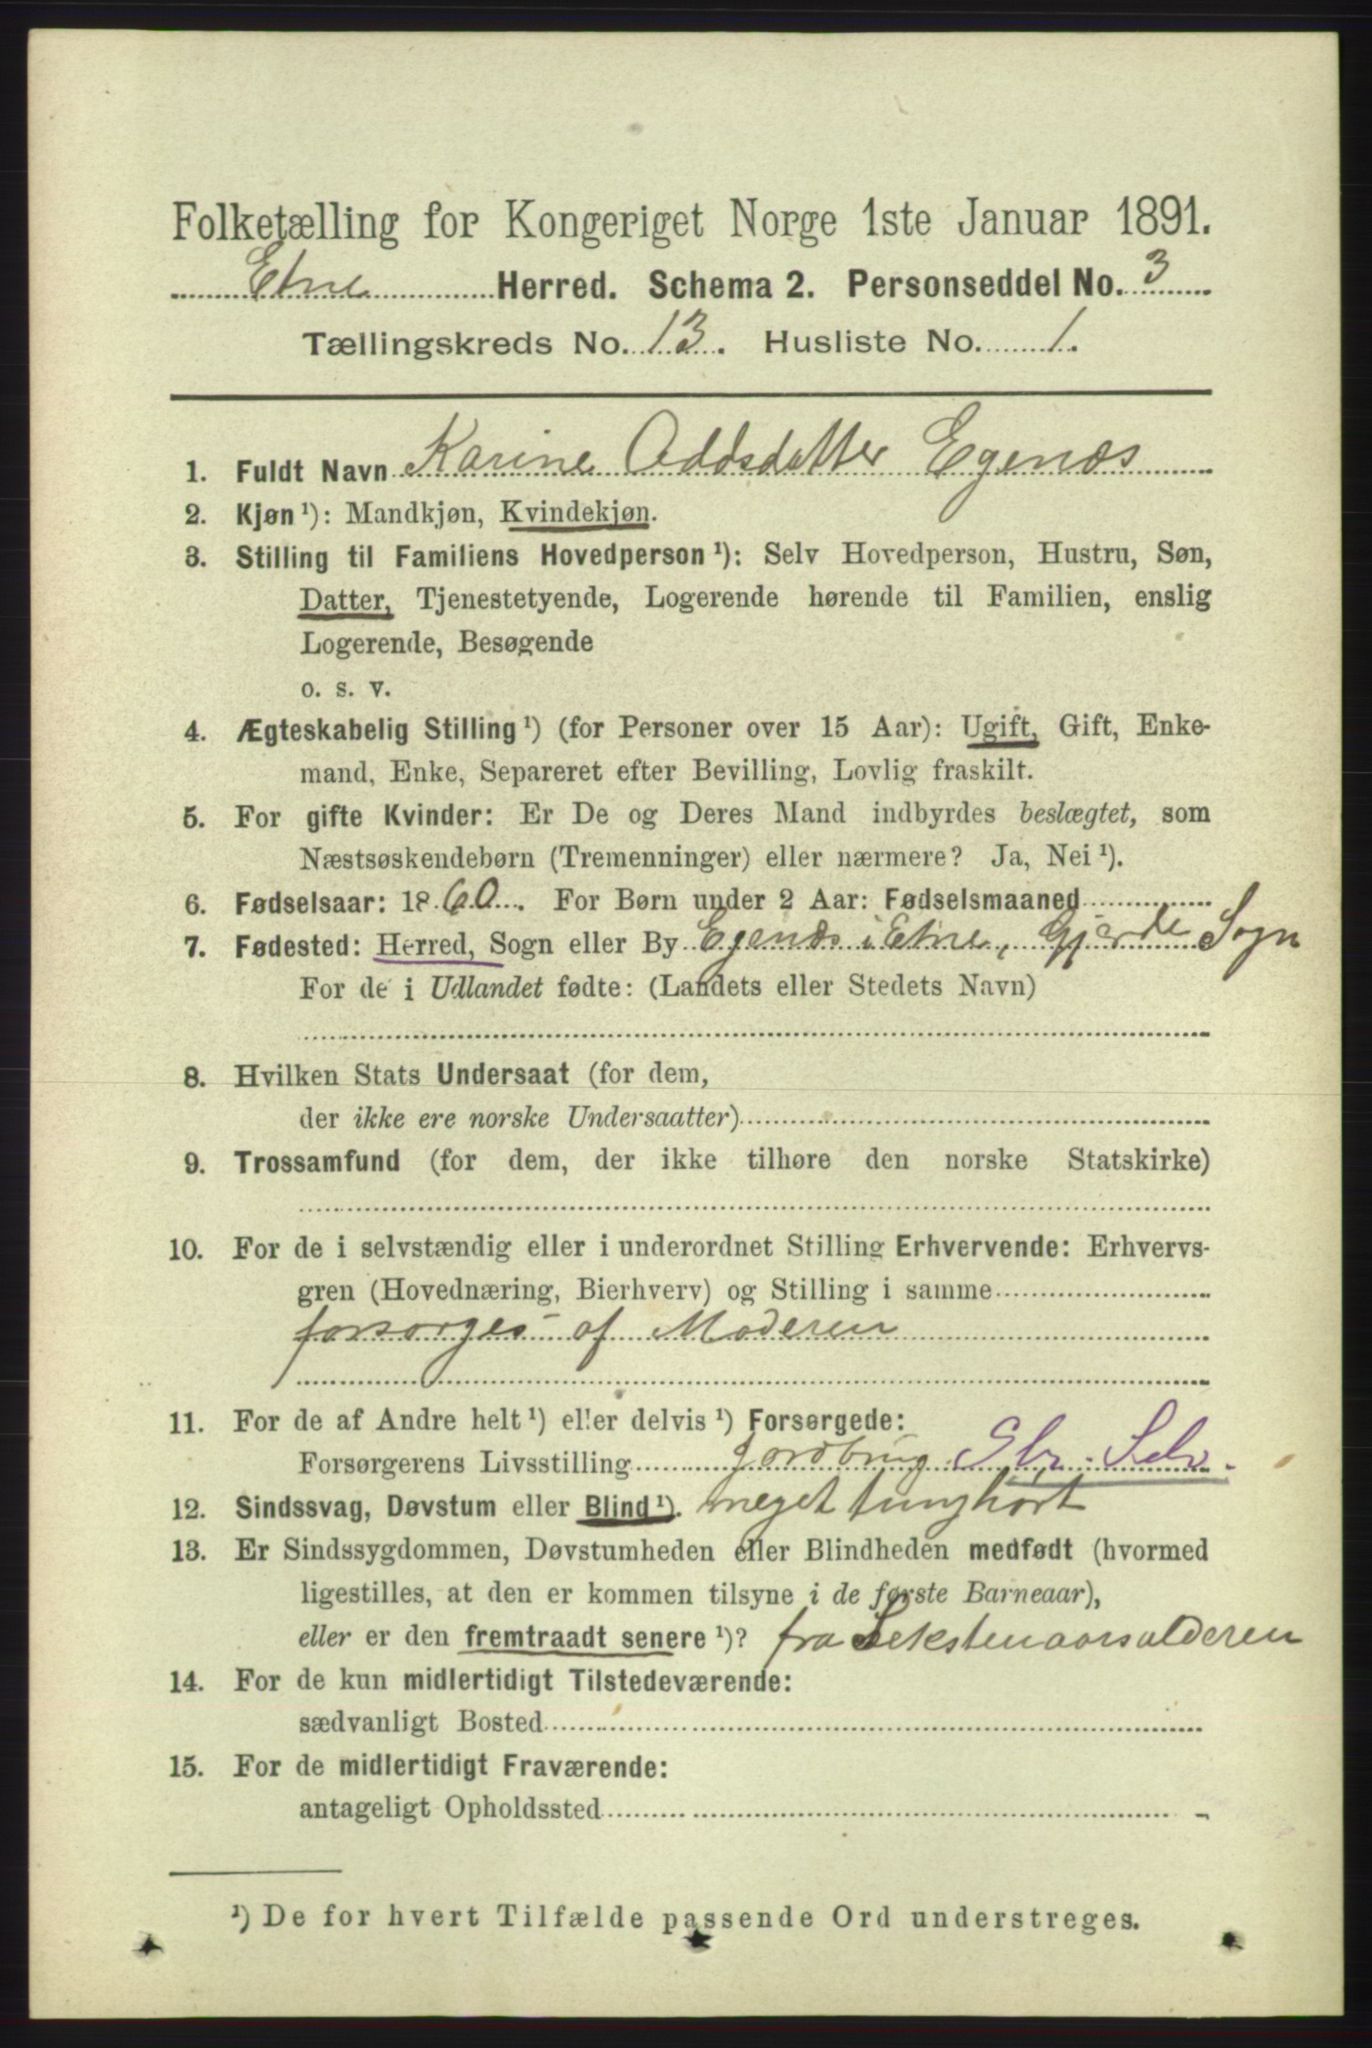 Folketælling for Kongeriget Norge 1ste Januar 1891.
Etne Herred. Schema 2. Personseddel No. 3
Tællingskreds No. 13. Husliste No. 1.
1. Fuldt Navn Karine Addsdatter Egenæs
2. Kjøn ¹): Mandkjøn, Kvindekjøn.
3. Stilling til Familiens Hovedperson ¹): Selv Hovedperson, Hustru, Søn,
Datter, Tjenestetyende, Logerende hørende til Familien, enslig
Logerende, Besøgende
o. s. v.
4. Ægteskabelig Stilling ¹) (for Personer over 15 Aar): Ugift, Gift, Enke-
mand, Enke, Separeret efter Bevilling, Lovlig fraskilt.
5. For gifte Kvinder: Er De og Deres Mand indbyrdes beslægtet, som
Næstsøskendebørn (Tremenninger) eller nærmere? Ja, Nei ¹).
6. Fødselsaar: 1860. For Børn under 2 Aar: Fødselsmaaned
7. Fødested: Herred, Sogn eller By Egenæs i Etne, Gjerde Sogn
For de i Udlandet fødte: (Landets eller Stedets Navn)
8. Hvilken Stats Undersaat (for dem,
der ikke ere norske Undersaatter)
9. Trossamfund (for dem, der ikke tilhøre den norske Statskirke)
10. For de i selvstændig eller i underordnet Stilling Erhvervende: Erhvervs-
gren (Hovednæring, Bierhverv) og Stilling i samme
forsørges af Moderen
11. For de af Andre helt ¹) eller delvis ¹) Forsørgede:
Forsørgerens Livsstilling Jordbrug Gbr. Selv.
12. Sindssvag, Døvstum eller Blind ¹). meget tunghørt
13. Er Sindssygdommen, Døvstumheden eller Blindheden medfødt (hvormed
ligestilles, at den er kommen tilsyne i de første Barneaar),
eller er den fremtraadt senere ¹)? fra Sekstenaarsalderen
14. For de kun midlertidigt Tilstedeværende:
sædvanligt Bosted
15. For de midlertidigt Fraværende:
antageligt Opholdssted
¹) De for hvert Tilfælde passende Ord understreges.